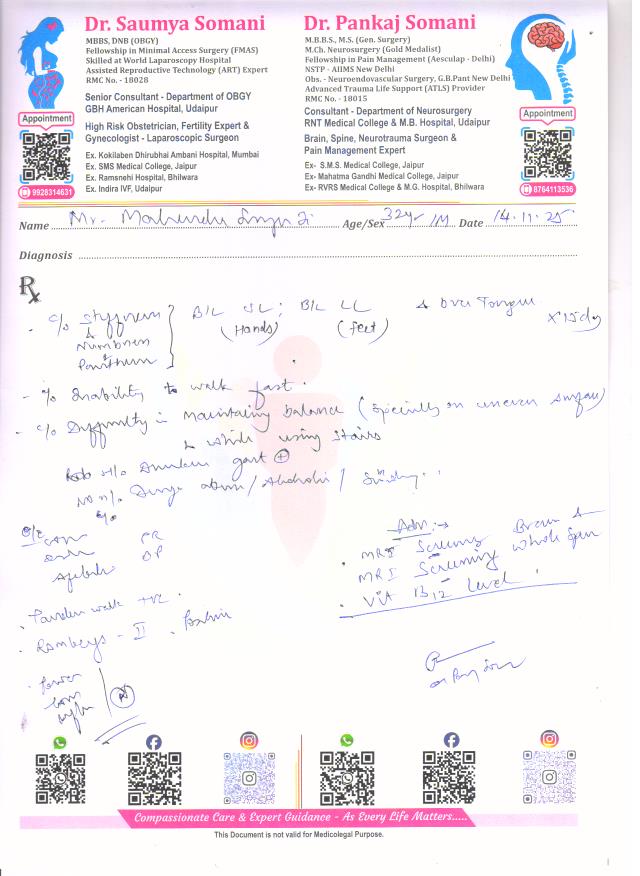 Dr. Saumya Somani
MBBS, DNB (OBGY)
Fellowship in Minimal Access Surgery (FMAS)
Skilled at World Laparoscopy Hospital
Assisted Reproductive Technology (ART) Expert
RMC No. - 18028
Senior Consultant - Department of OBGY
GBH American Hospital, Udaipur
High Risk Obstetrician, Fertility Expert &
Gynecologist - Laparoscopic Surgeon
Ex. Kokilaben Dhirubhai Ambani Hospital, Mumbai
Ex. SMS Medical College, Jaipur
Ex. Ramsnehi Hospital, Bhilwara
Ex. Indira IVF, Udaipur
Appointment
9928314631
Dr. Pankaj Somani
M.B.B.S., M.S. (Gen. Surgery)
M.Ch. Neurosurgery (Gold Medalist)
Fellowship in Pain Management (Aesculap - Delhi)
NSTP - AIIMS New Delhi
Obs. - Neuroendovascular Surgery, G.B.Pant New Delhi
Advanced Trauma Life Support (ATLS) Provider
RMC No. - 18015
Consultant - Department of Neurosurgery
RNT Medical College & M.B. Hospital, Udaipur
Brain, Spine, Neurotrauma Surgeon &
Pain Management Expert
Ex- S.M.S. Medical College, Jaipur
Ex- Mahatma Gandhi Medical College, Jaipur
Ex- RVRS Medical College & M.G. Hospital, Bhilwara
Appointment
8764113536
Name Mr. Age/Sex 32yr /M Date 14.11.25
Diagnosis
Rx
- c/o B/L UL ; B/L LL & Over Tongue x 15 day
& Numbness (Hands) (feet)
- c/o Inability to walk fast.
- c/o Difficulty in Maintaining balance (specially on uneven surface)
& while using stairs
gait +
No h/o
o/e
Adv:→
MRI Screening Brain &
MRI Screening Whole Spine
. Vit B12 level
. walk +ve.
. Rombergs -
Power
N
Compassionate Care & Expert Guidance - As Every Life Matters.....
This Document is not valid for Medicolegal Purpose.